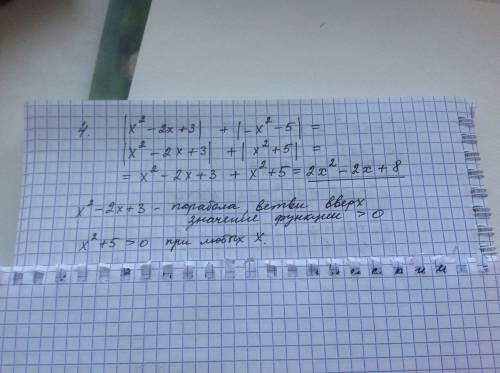 4. |x² - 2x + 3| + |-x² - 5| =
|x² - 2x + 3| + |x² + 5| =
= x² - 2x + 3 + x² + 5 = 2x² - 2x + 8
x² - 2x + 3 - парабола ветви вверх
значение функции > 0
x² + 5 > 0 при любых x.